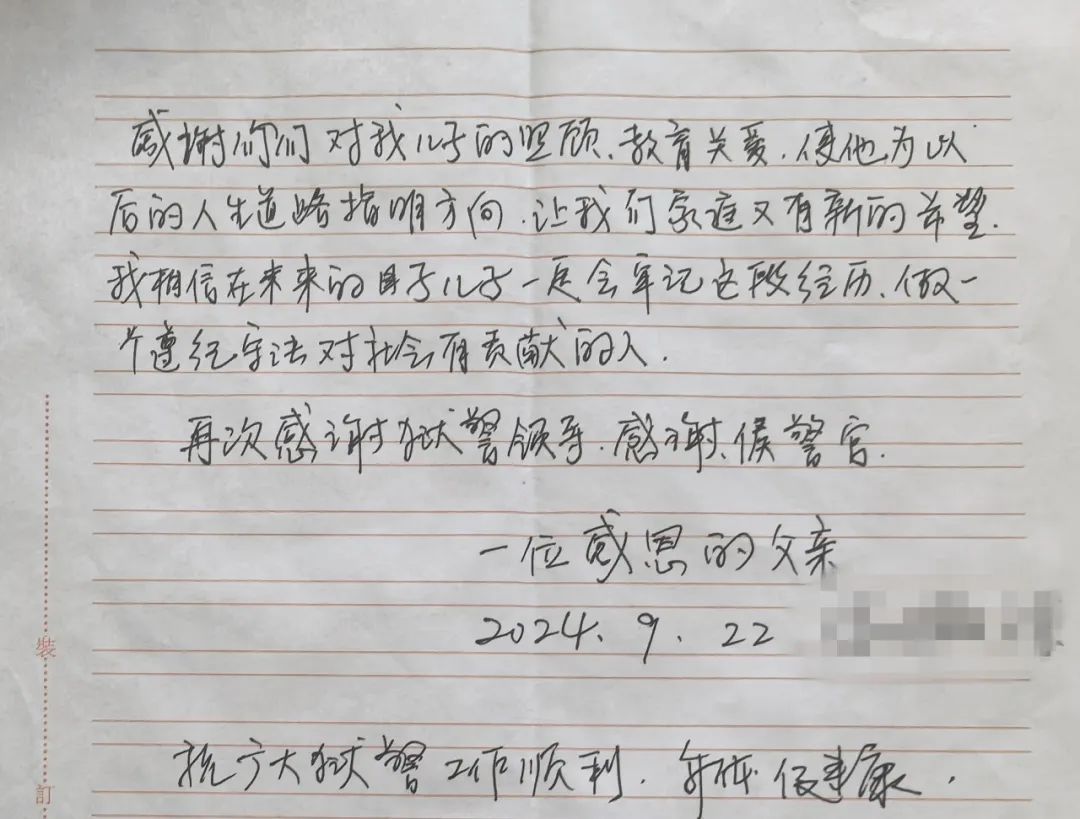 感谢你们对我儿子的照顾、教育关爱、使他为以
后的人生道路指明方向、让我们家庭又有新的希望.
我相信在未来的日子儿子一定会牢记这段经历、做一
个遵纪守法对社会有贡献的人.
再次感谢狱警领导.感谢侯警官.
一位感恩的父亲
2024.9.22
祝广大狱警工作顺利.身体健康.
裝
訂